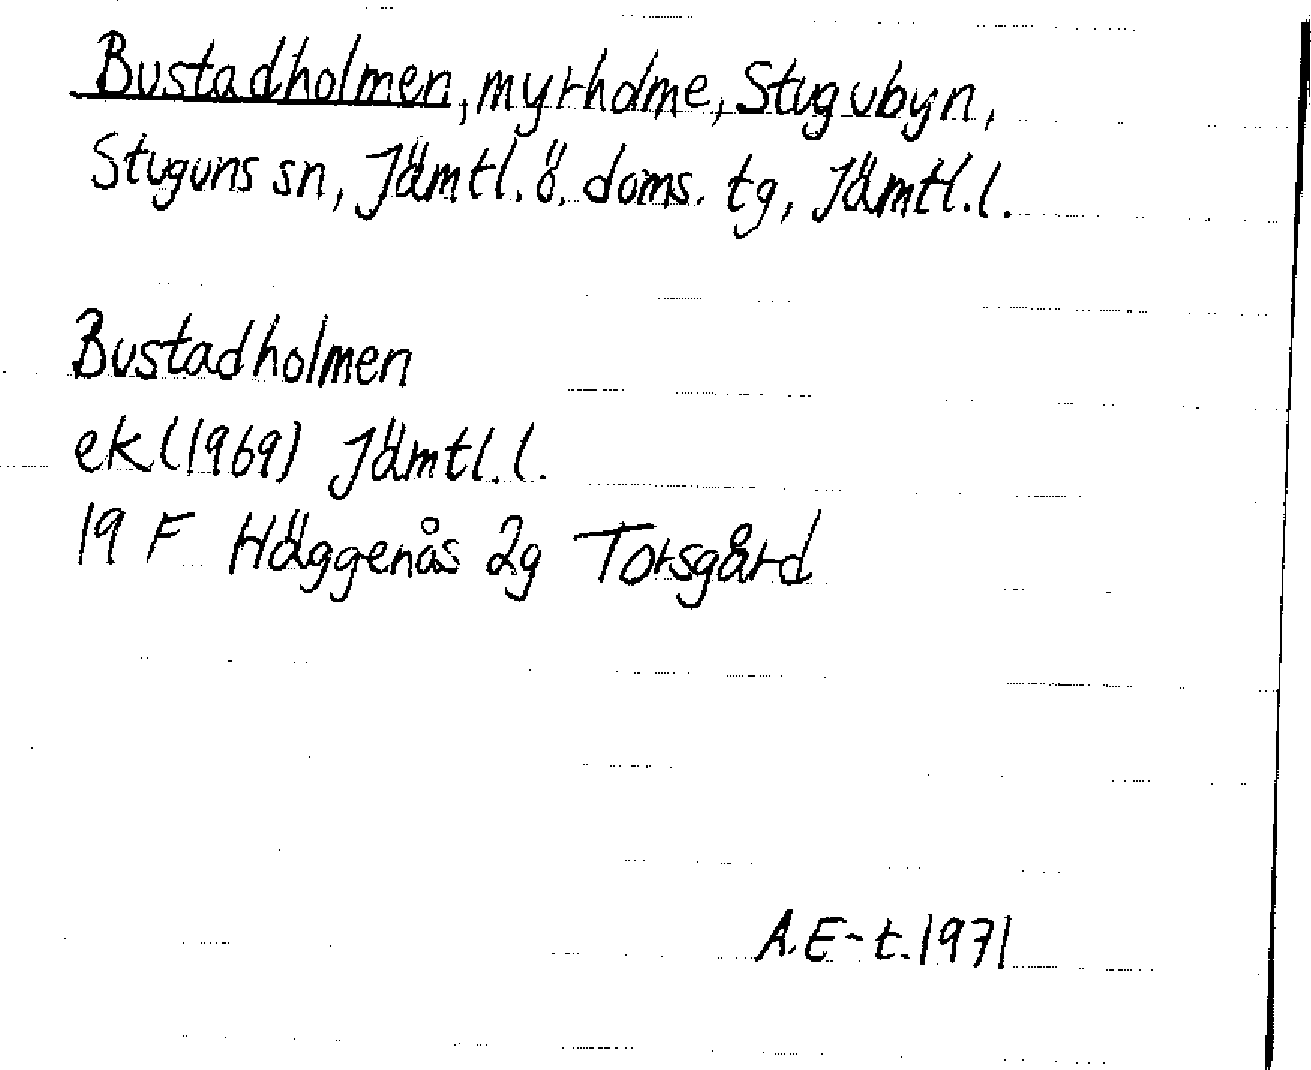 Bustadholmen, myrholme, Stugubyn,
Stuguns sn, Jämtl. ö. doms. tg, Jämtl. l.
Bustadholmen
ek (1969) Jämtl. l.
19 F Häggenås 2g Torsgård
A. E-t. 1971